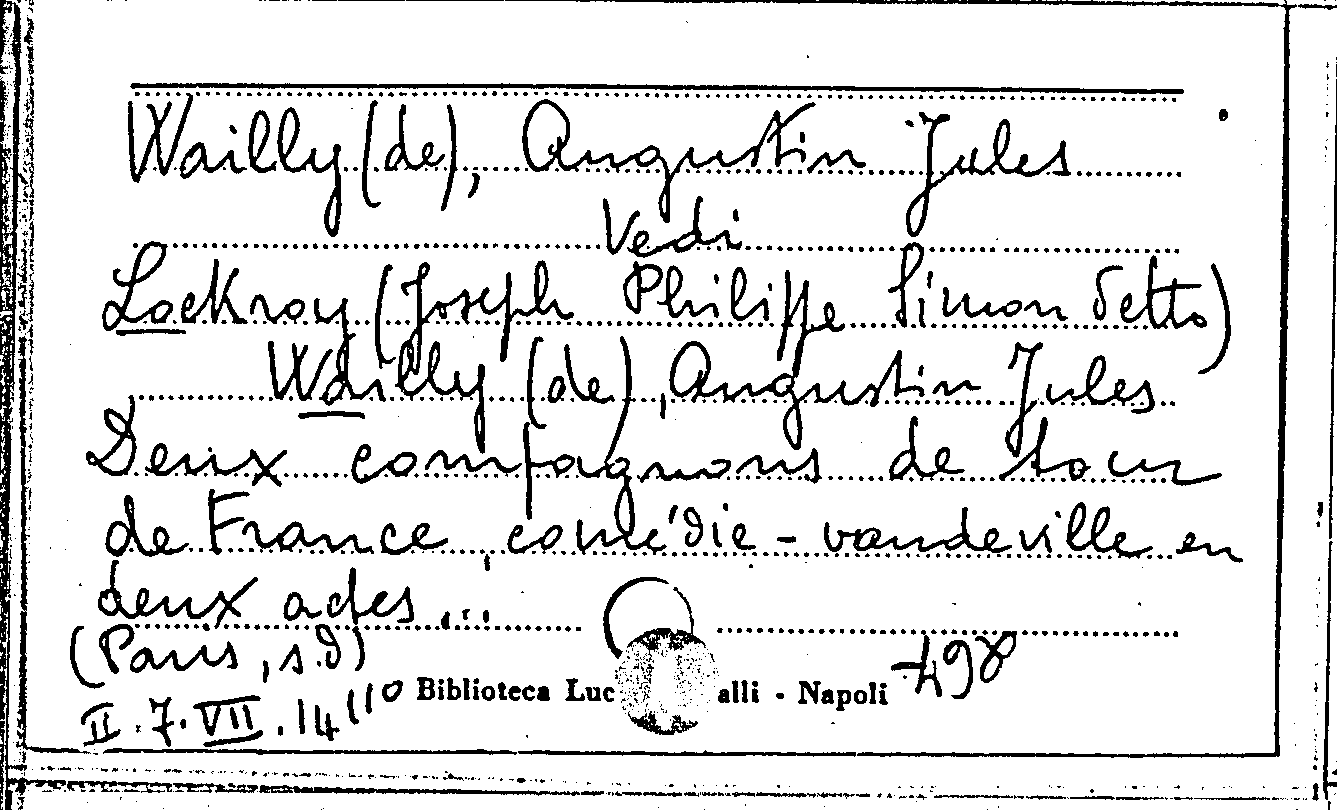 Wailly (de), Augustin Jules
Vedi
Lockroy (Joseph Philippe Simon detto)
Wailly (de), Augustin Jules
Deux compagnons de tour
de France, comédie - vaudeville en
deux actes...
(Paris, s.d)
II.7.VII.14 110 Biblioteca Luc alli - Napoli 498